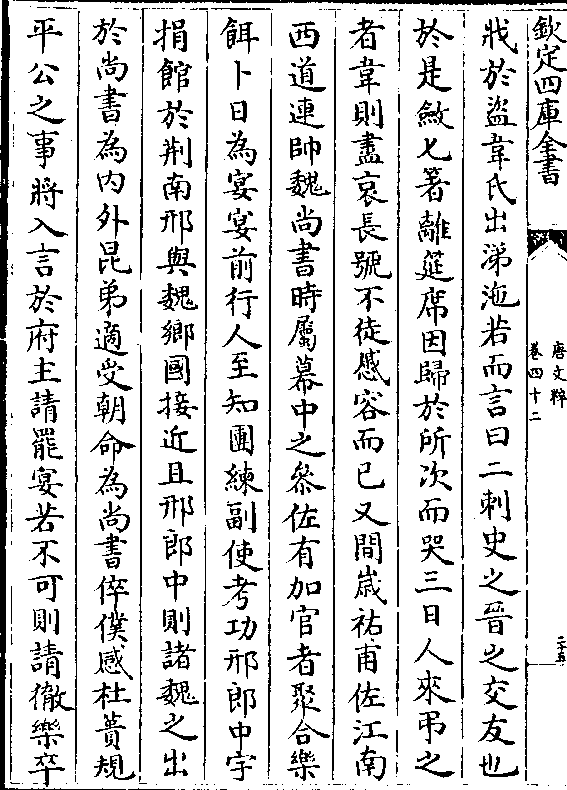 欽定四庫全書
唐文粹
卷四十二
二十五
戕於盜韋氏出涕沲若而言曰二刺史之晉之交友也
於是斂匕箸離筵席因歸於所次而哭三日人來弔之
者韋則盡哀長號不徒慼容而已又間嵗祐甫佐江南
西道連帥魏尚書時屬幕中之叅佐有加官者聚合樂
餌卜日為宴宴前行人至知團練副使考功邢郎中宇
捐館於荆南邢與魏鄉國接近且邢郎中則諸魏之出
於尚書為内外昆弟適受朝命為尚書倅僕感杜蕢規
平公之事將入言於府主請罷宴若不可則請徹樂卒